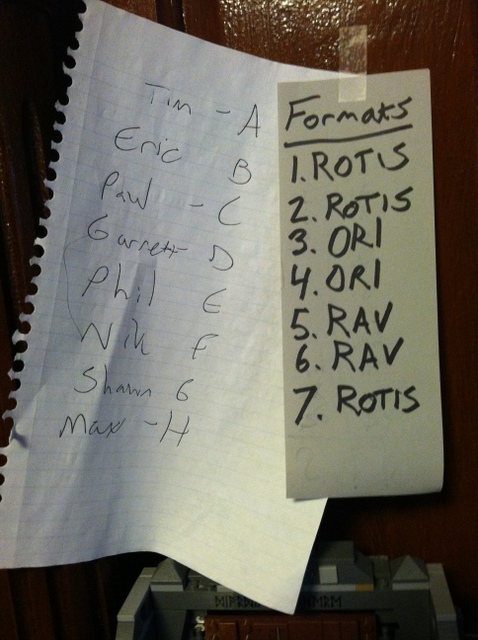 Tim - A
Eric B
Paul - C
Garrett D
Phil E
Nik F
Shawn G
Max - H
Formats
1. ROTIS
2. ROTIS
3. ORI
4. ORI
5. RAV
6. RAV
7. ROTIS